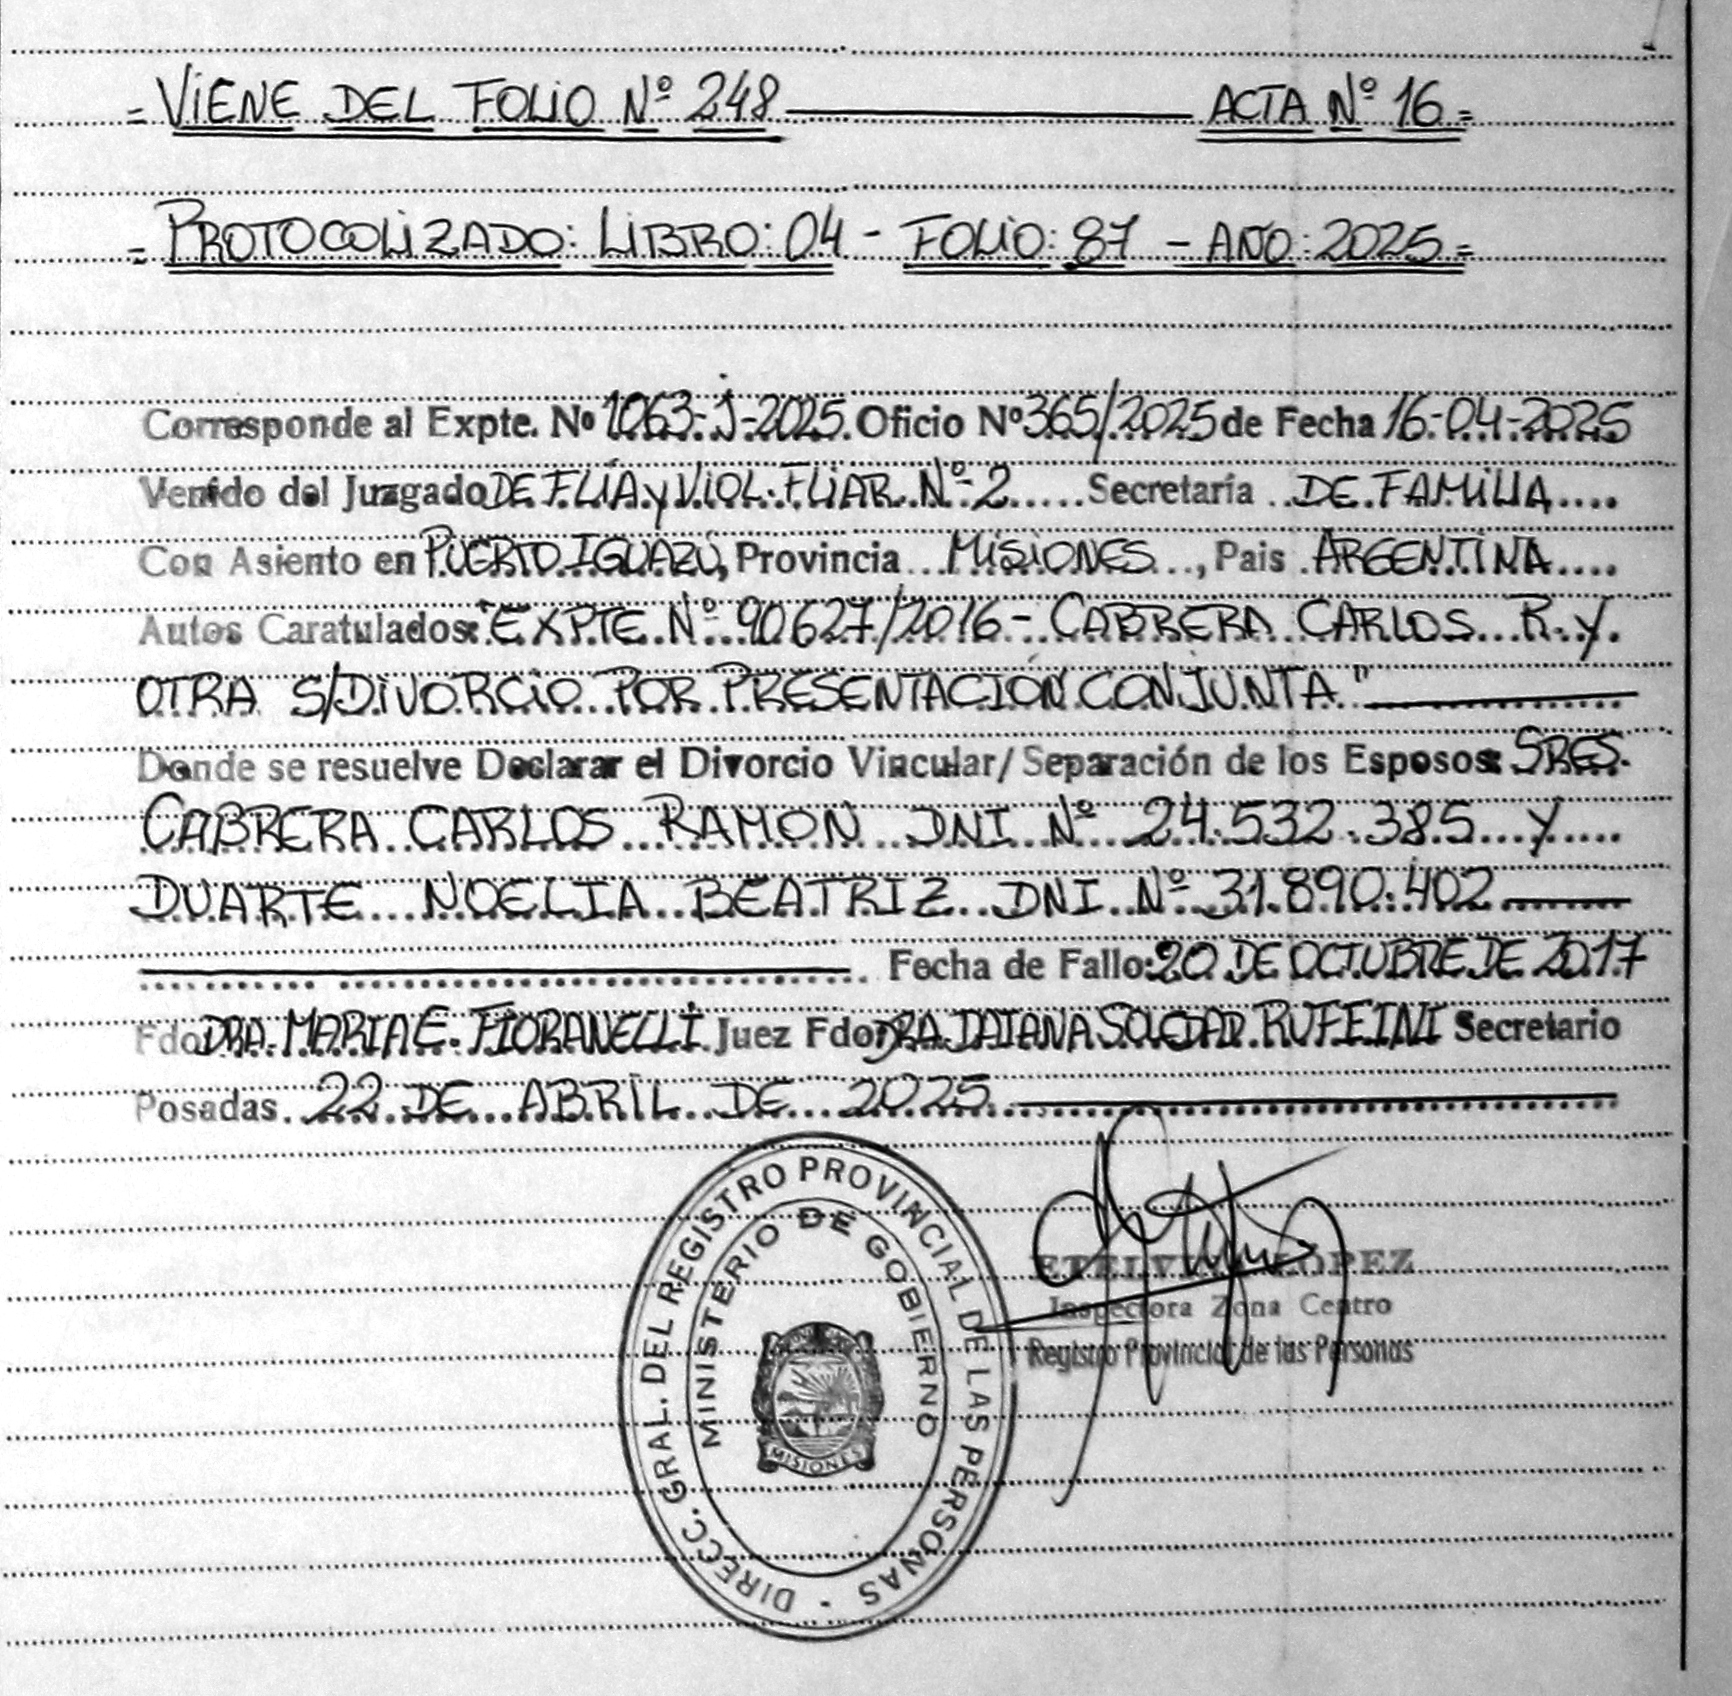 = VIENE DEL FOLIO Nº 248 ACTA Nº 16 =
= PROTOCOLIZADO: LIBRO: 04 - FOLIO: 87 - AÑO: 2025 =
Corresponde al Expte. Nº 1063-J-2025 Oficio Nº 365/2025 de Fecha 16-04-2025
Venido del Juzgado DE FLIA y VIOL. FLIAR Nº 2 Secretaría DE FAMILIA
Con Asiento en PUERTO IGUAZÚ, Provincia MISIONES, Pais ARGENTINA
Autos Caratulados: "EXPTE. Nº 90627/2016 - CABRERA CARLOS R. y
OTRA S/DIVORCIO POR PRESENTACIÓN CONJUNTA"
Donde se resuelve Declarar el Divorcio Vincular/ Separación de los Esposos: SRES.
CABRERA CARLOS RAMON DNI Nº 24.532.385 y
DUARTE NOELIA BEATRIZ DNI Nº 31.890.402
Fecha de Fallo: 20 DE OCTUBRE DE 2017
Fdo DRA. MARIA E. FIORANELLI Juez Fdo: DRA DAIANA SOLEDAD RUFFINI Secretario
Posadas 22 DE ABRIL DE 2025
DIRECC. GRAL. DEL REGISTRO PROVINCIAL DE LAS PERSONAS -
MINISTERIO DE GOBIERNO
MISIONES
ETELVINA LÓPEZ
Inspectora Zona Centro
Registro Provincial de las Personas